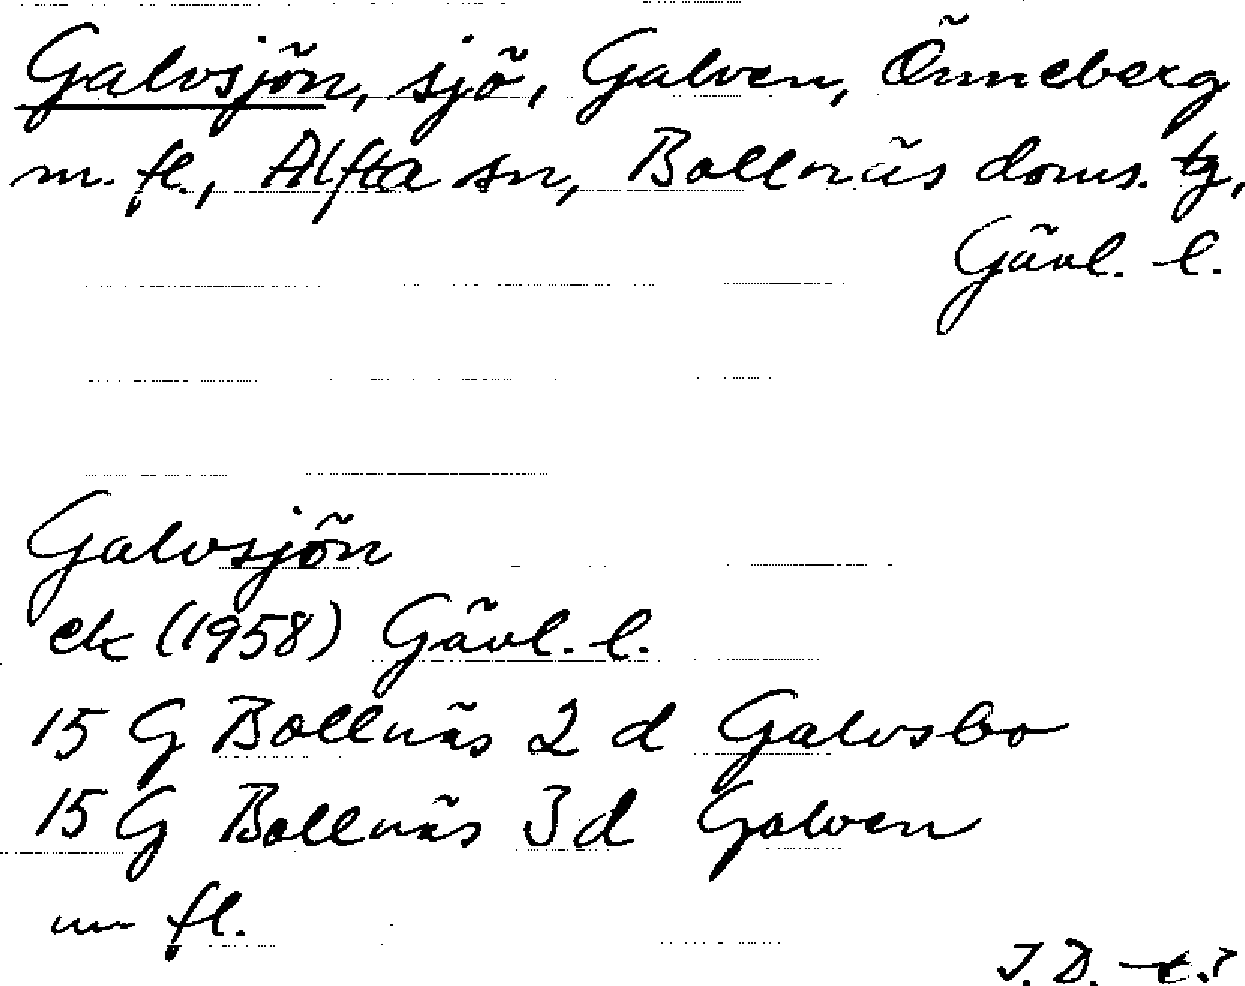 Galvsjön, sjö, Galven, Önneberg
m. fl., Alfta sn, Bollnäs doms. tg,
Gävl. l.
Galvsjön
ek (1958) Gävl. l.
15 G Bollnäs 2 d Galvsbo
15 G Bollnäs 3d Galven
m fl.
J. D.